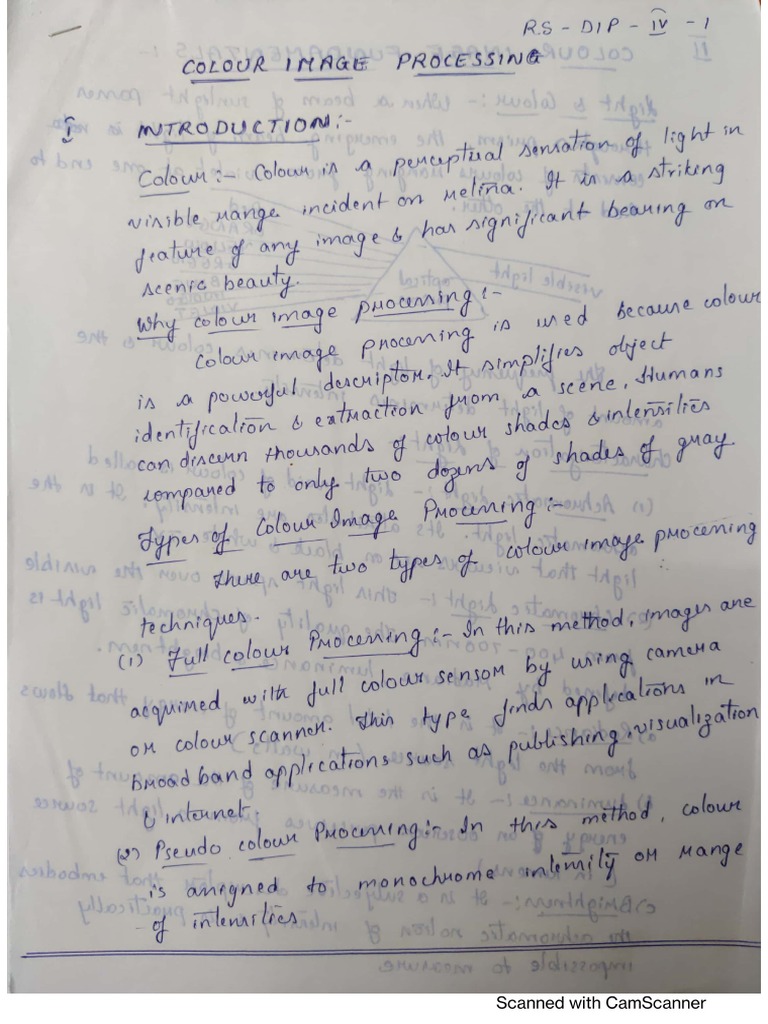 RS - DIP - IV - 1
COLOUR IMAGE PROCESSING
I INTRODUCTION:-
Colour:- Colour is a perceptual sensation of light in
visible range incident on retina. It is a striking
feature of any image & has significant bearing on
scenic beauty.
Why colour image processing:-
Colour image processing is used because colour
is a powerful descriptor. It simplifies object
identification & extraction from a scene. Humans
can discern thousands of colour shades & intensities
compared to only two dozens of shades of gray.
Types of Colour Image Processing:-
There are two types of colour image processing
techniques.
(1) Full colour Processing:- In this method, images are
acquired with full colour sensor by using camera
or colour scanner. This type finds applications in
broad band applications such as publishing, visualization
& internet.
(2) Pseudo colour Processing:- In this method, colour
is assigned to monochrome intensity or range
of intensities
Scanned with CamScanner